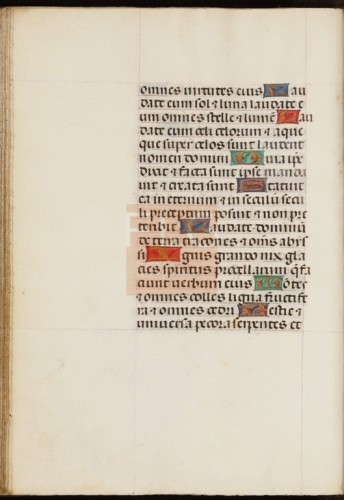 omnes virtutes eius Lau
date eum sol & luna laudate e
um omnes stelle & lumē Lau
date eum celi celorum & aque
que super celos sunt laudent
nomen domini Quia ipse
dixit & facta sunt ipse manda
vit & creata sunt Statuit
ea in eternum & in seculū secu
li preceptum posuit & non pre
teribit Laudate dominū
de terra dracones & om̄s abys
si Ignis grando nix gla
cies spiritus procellarum q̄ fa
ciunt verbum eius Mōtes
& omnes colles ligna fructif
ra & omnes cedri Bestie &
universa pecora serpentes et